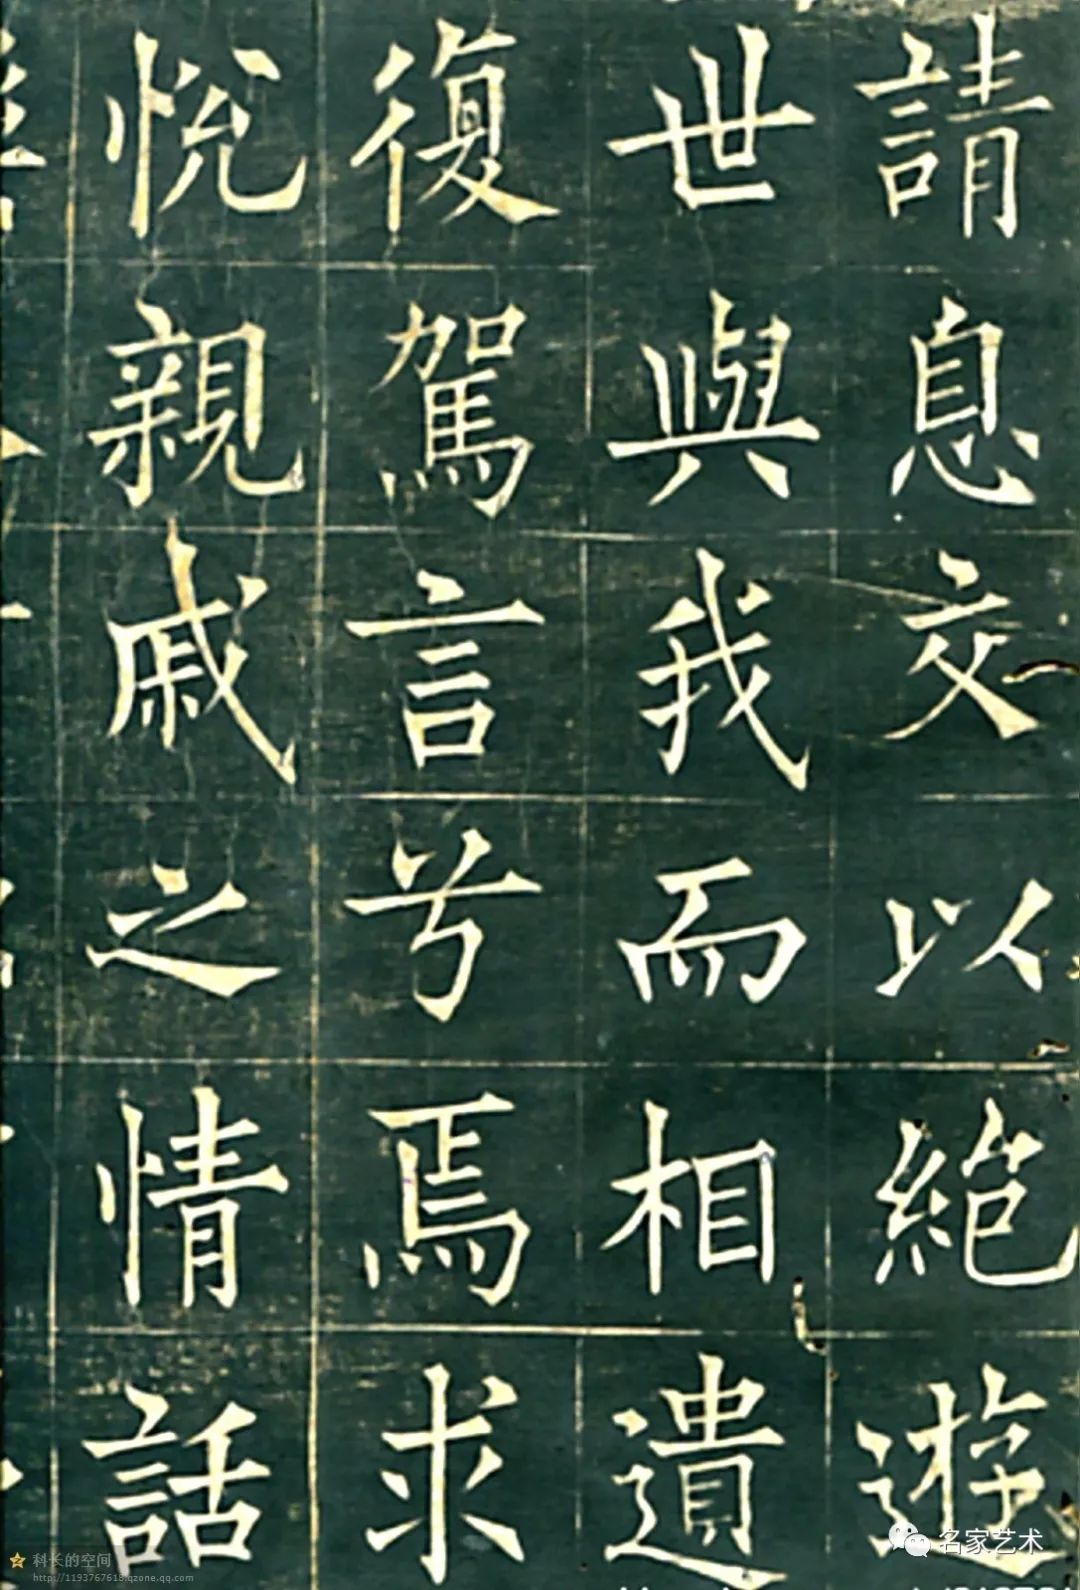 請息交以絕遊
世與我而相遺
復駕言兮焉求
悅親戚之情話
名家艺术
科长的空间
http://1193767618.qzone.qq.com